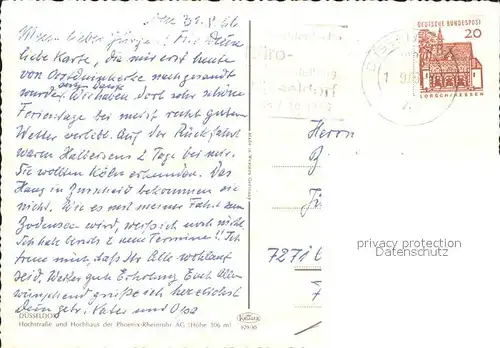 den 31.8.66
Mein lieber Jürgen! Für Deine
liebe Karte, die mir erst heute
von Oostduinkerke nachgesandt
wurde, herzl. Dank. Wir haben doch sehr schöne
Ferientage bei meist recht gutem
Wetter verlebt. Auf der Rückfahrt
waren 2 Tage bei mir.
Sie wollten Köln erkunden. Das
Haus in bekommen sie
nicht. Wie es mit meiner Fahrt zum
Bodensee wird, weiß ich noch nicht.
Ich habe noch 2 neue Termine!! Ich
freue mich, daß Ihr Alle wohlauf
seid. Weiter gute Erholung Euch Allen
wünschend grüße ich herzlichst
Dein Vater und Opa
DÜSSELDORF
Hochstraße und Hochhaus der Phoenix-Rheinrohr AG (Höhe 106 m)
Krüger
DEUTSCHE BUNDESPOST
20
LORSCH/HESSEN
Herrn
privacy protection
Datenschutz
7271